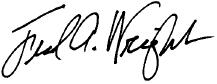 Fred A. Wright